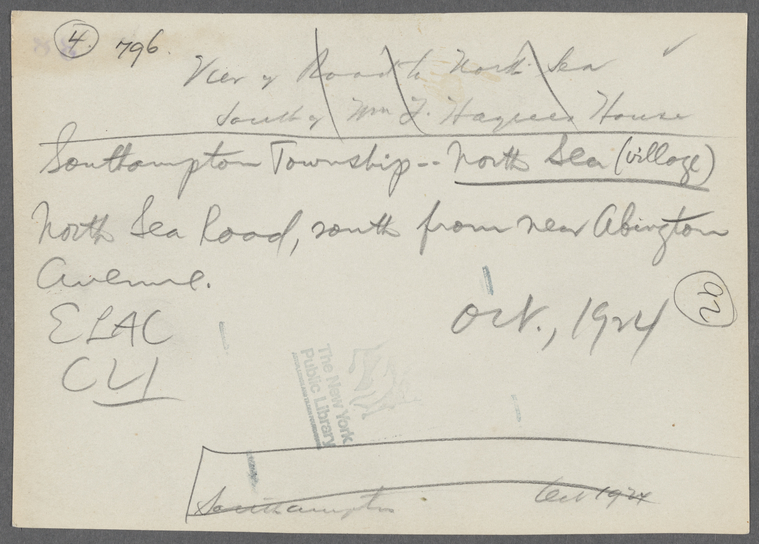 4. 796.
View of Road to North Sea
South of Wm F. House
Southampton Township -- North Sea (village)
North Sea Road, south from near Abington
Avenue.
ELAC
CLI
Oct., 1924
92
The New York
Public Library
Southampton Oct 1924